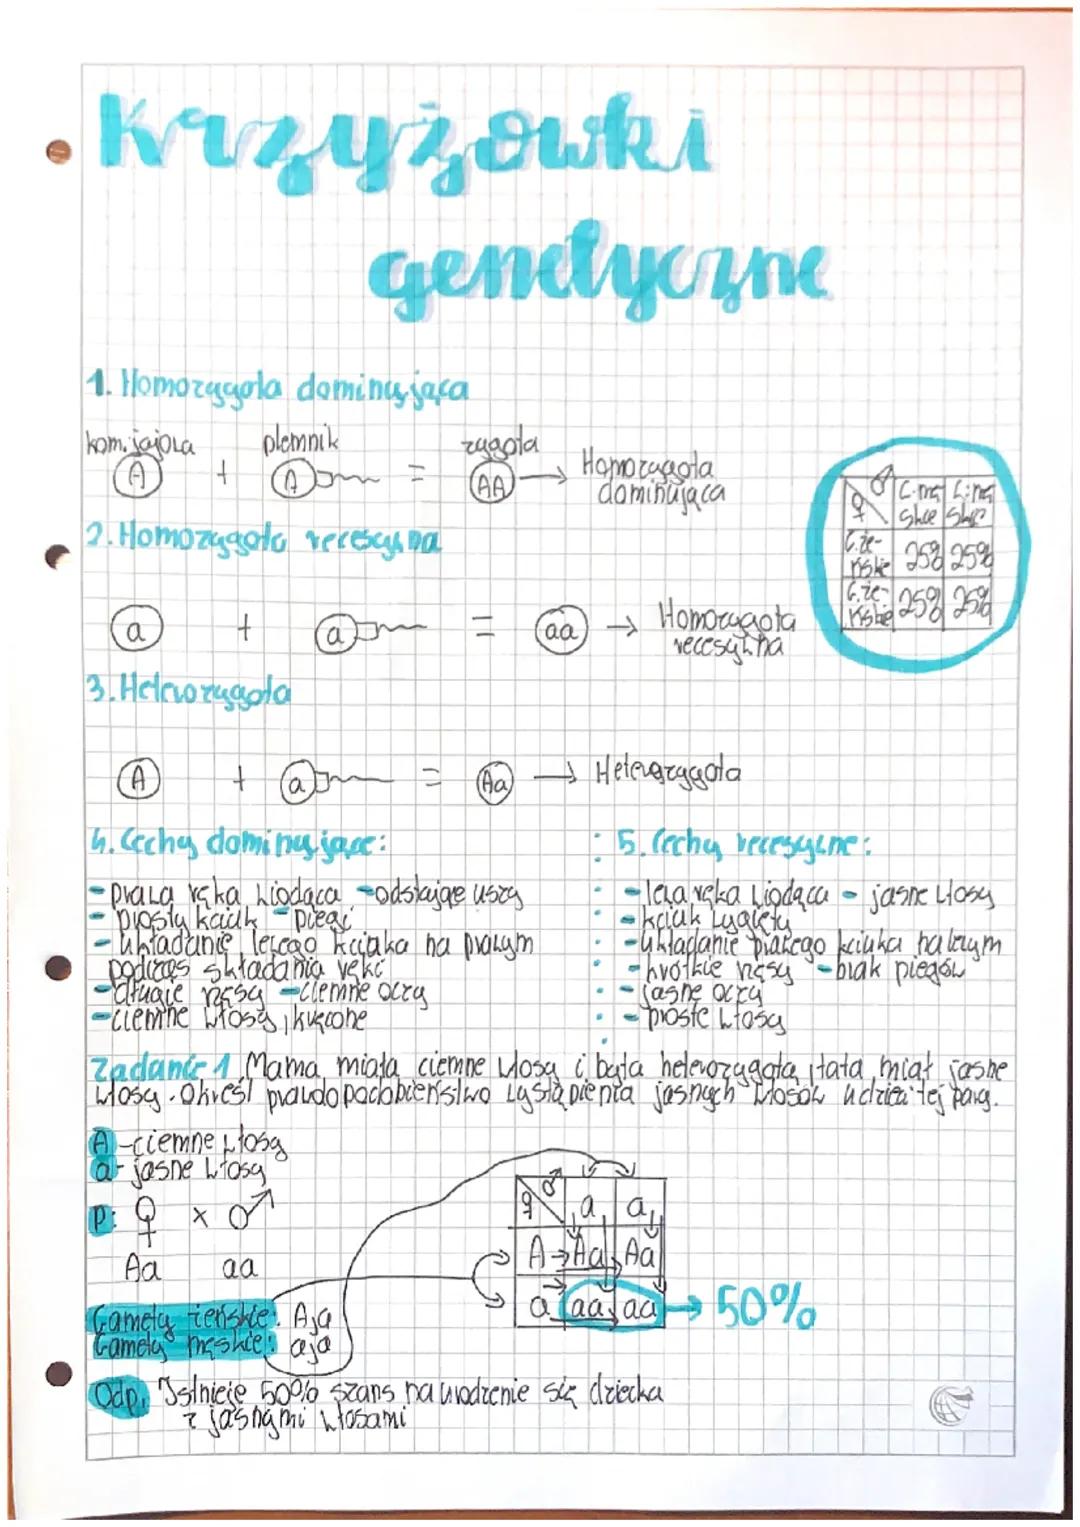 Krzyżówki
genetyczne
1. Homozygota dominująca
kom. jajowa plemnik zygota
A + A = AA → Homozygota
dominująca
♀ ♂ G. mę G. mę
skie skie
G. że- 25% 25%
ńskie
G. że- 25% 25%
ńskie
2. Homozygota recesywna
a + a = aa → Homozygota
recesywna
3. Heterozygota
A + a = Aa → Heterozygota
4. Cechy dominujące:
- prawa ręka wiodąca - odstające uszy
- prosty kciuk - piegi
- układanie lewego kciuka na prawym
podczas składania ręki
- długie rzęsy - ciemne oczy
- ciemne włosy, kręcone
5. Cechy recesywne:
- lewa ręka wiodąca - jasne włosy
- kciuk wygięty
- układanie prawego kciuka na lewym
- krótkie rzęsy - brak piegów
- jasne oczy
- proste włosy
Zadanie 1 Mama miała ciemne włosy i była heterozygotą, tata miał jasne
włosy. Określ prawdopodobieństwo wystąpienia jasnych włosów u dzieci tej pary.
A - ciemne włosy
a - jasne włosy
P: ♀ x ♂
Aa aa
Gamety żeńskie: A, a
Gamety męskie: a, a
♀ ♂ a a
A Aa Aa
a aa aa → 50%
Odp. Istnieje 50% szans na urodzenie się dziecka
z jasnymi włosami